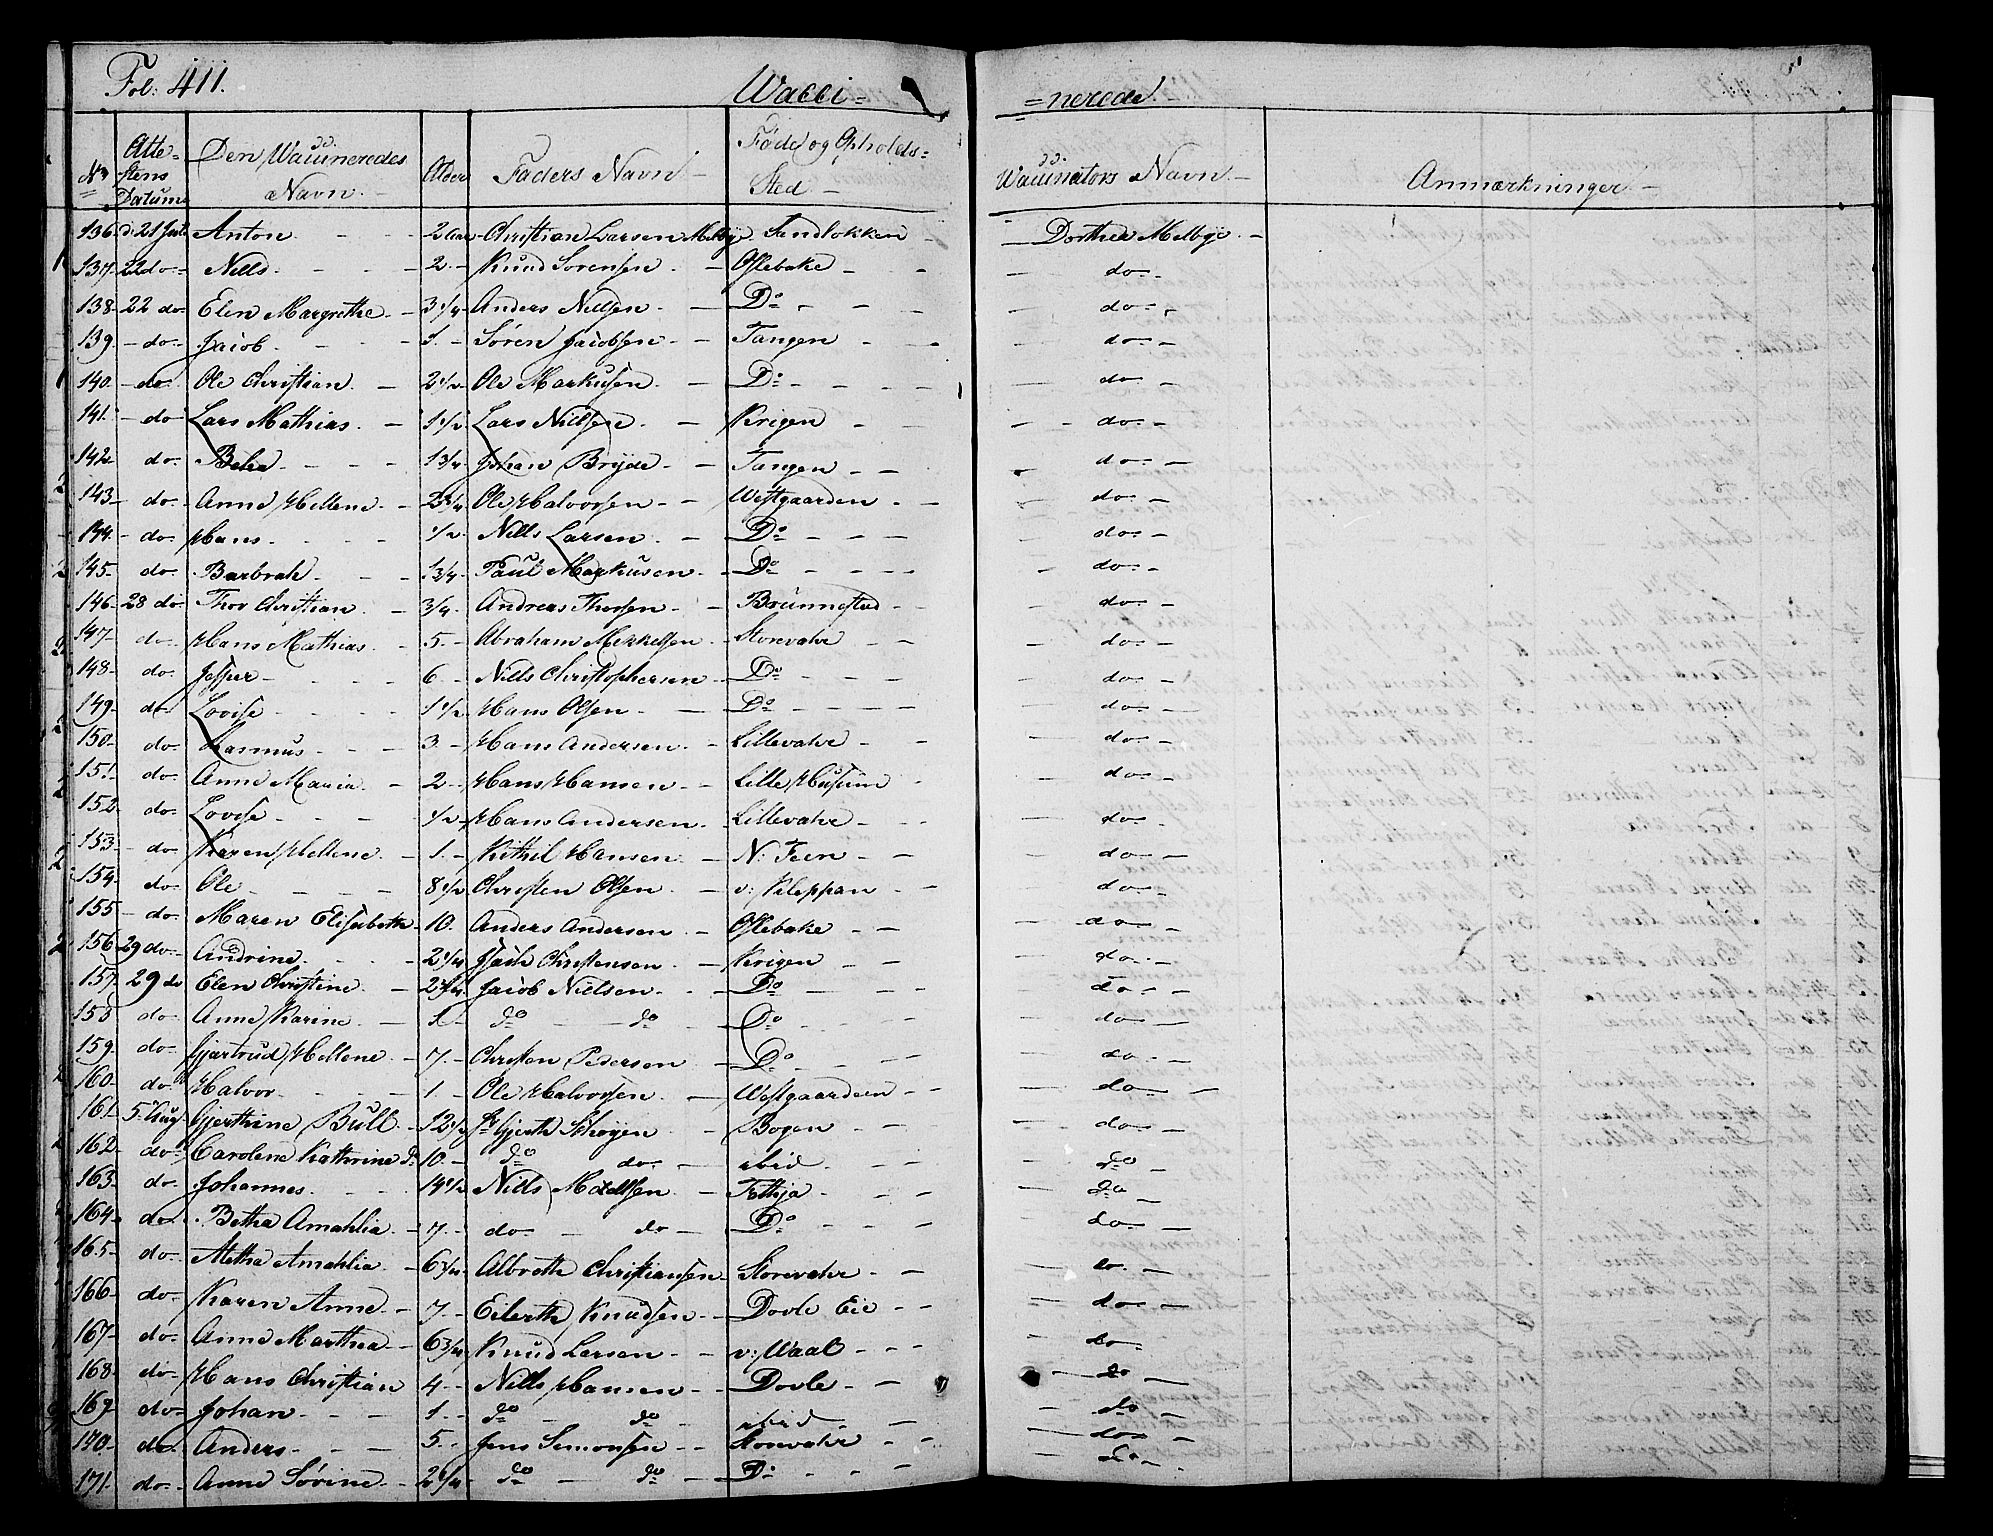 Fol: 411.
Wacci= =nerede.
No Atte-stens Datum Den Waccineredes Navn. Alder Faders Navn Føde og Opholds-Sted Waccinators Navn. Anmærkninger
136 d: 21 Juli Anton 2 Aar Christian Larsen Melbye Sandløkken Dorthea Melbye
137 22 do Niels 2 Knud Sørensen Oslebake do
138 22 do Elen Margrethe 3 1/4 Anders Nielsen Do do
139 do Jacob 1 Søren Jacobsen Tangen do
140 do Ole Christian 2 1/2 Ole Markusen Do do
141 do Lars Mathias 1 1/2 Lars Nielsen Krigen do
142 do Belia 1 3/4 Johan Bryde Tangen do
143 do Anne Hellene 2 3/4 Ole Halvorsen Westgaarden do
144 do Hans 1/2 Niels Larsen Do do
145 do Barbrah 1 3/4 Paul Markusen Do do
146 28 do Thor Christian 3/4 Andreas Thorsen Brunnestad do
147 do Hans Mathias 5 Abraham Mikkelsen Storevahr do
148 do Jesper 6 Niels Christophersen Do do
149 do Lovise 1 1/2 Hans Olsen Do do
150 do Rasmus 3 Hans Andersen Lillevahr do
151 do Anne Maria 2 Hans Hansen Lille Husum do
152 do Lovise 1/2 Hans Andersen Lillevahr do
153 do Karen Hellene 1 Kithil Hansen N: Feen do
154 do Ole 8 1/2 Christen Olsen v: Kleppan do
155 do Maren Elisabeth 10 Anders Andersen Oslebake do
156 29 do Andrine 2 1/4 Christensen Krigen do
157 29 do Elen Christine 2 3/4 Jacob Nielsen Do do
158 do Anne Karine 1 do do Do do
159 do Gjertrud Hellene 7 Christen Pedersen Do do
160 do Halvor 1 Ole Halvorsen Westgaarden do
161 5 Aug Gjerthine Bull 12 1/2 Hr Gjerth Schøyen Bogen do
162 do Carolene Kathrine do 10 do do ibid do
163 do Johannes 14 1/2 Niels Mikkelsen Fethja do
164 do Betha Amahlia 7 do do Do do
165 do Aletha Amahlia 6 3/4 Albreth Christiansen Storevahr do
166 do Karen Anne 7 Eilerth Knudsen Dovle Eie do
167 do Anne Marthea 6 3/4 Knud Larsen v: Waal do
168 do Hans Christian 4 Niels Hansen Dovle do
169 do Johan 1 do do ibid do
170 do Anders 5 Jens Simonsen Storevahr do
171 do Anne Sørine 2 1/4 do do Do do